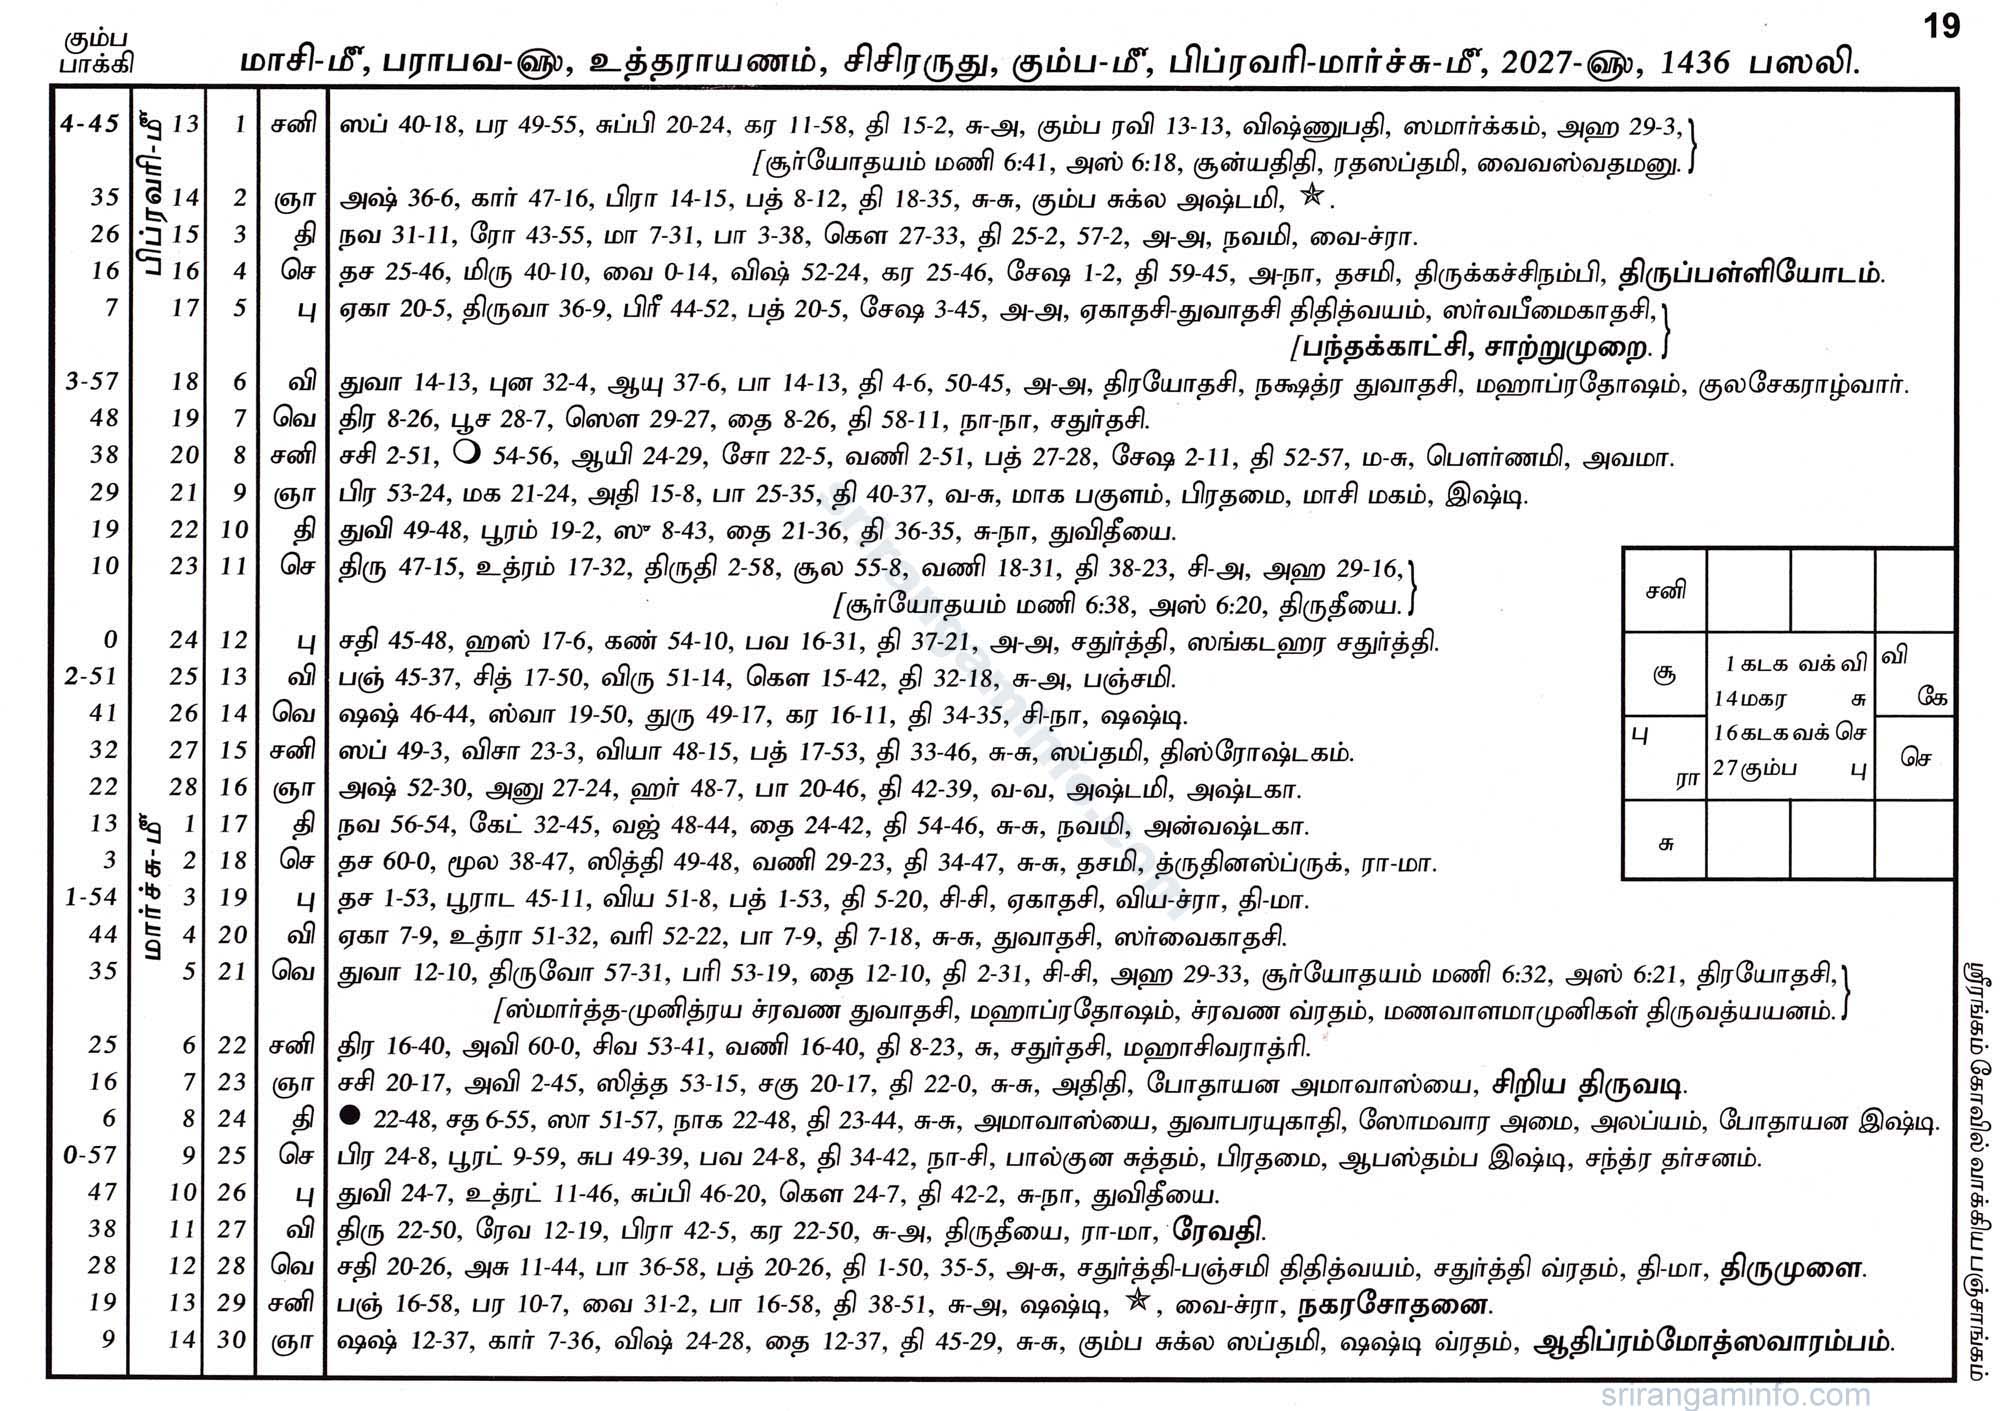 19
கும்ப
பாக்கி
மாசி-மீ, பராபவ-௵, உத்தராயணம், சிசிரருது, கும்ப-மீ, பிப்ரவரி-மார்ச்சு-மீ, 2027-௵, 1436 பஸலி.
பிப்ரவரி-மீ
4-45 13 1 சனி ஸப் 40-18, பர 49-55, சுப்பி 20-24, கர 11-58, தி 15-2, சு-அ, கும்ப ரவி 13-13, விஷ்ணுபதி, ஸமார்க்கம், அஹ 29-3,}
[சூர்யோதயம் மணி 6:41, அஸ் 6:18, சூன்யதிதி, ரதஸப்தமி, வைவஸ்வதமனு.
35 14 2 ஞா அஷ் 36-6, கார் 47-16, பிரா 14-15, பத் 8-12, தி 18-35, சு-சு, கும்ப சுக்ல அஷ்டமி, ☆.
26 15 3 தி நவ 31-11, ரோ 43-55, மா 7-31, பா 3-38, கௌ 27-33, தி 25-2, 57-2, அ-அ, நவமி, வை-ச்ரா.
16 16 4 செ தச 25-46, மிரு 40-10, வை 0-14, விஷ் 52-24, கர 25-46, சேஷ 1-2, தி 59-45, அ-நா, தசமி, திருக்கச்சிநம்பி, திருப்பள்ளியோடம்.
7 17 5 பு ஏகா 20-5, திருவா 36-9, பிரீ 44-52, பத் 20-5, சேஷ 3-45, அ-அ, ஏகாதசி-துவாதசி திதித்வயம், ஸர்வபீமைகாதசி,}
[பந்தக்காட்சி, சாற்றுமுறை.
3-57 18 6 வி துவா 14-13, புன 32-4, ஆயு 37-6, பா 14-13, தி 4-6, 50-45, அ-அ, திரயோதசி, நக்ஷத்ர துவாதசி, மஹாப்ரதோஷம், குலசேகராழ்வார்.
48 19 7 வெ திர 8-26, பூச 28-7, ஸௌ 29-27, தை 8-26, தி 58-11, நா-நா, சதுர்தசி.
38 20 8 சனி சசி 2-51, ○ 54-56, ஆயி 24-29, சோ 22-5, வணி 2-51, பத் 27-28, சேஷ 2-11, தி 52-57, ம-சு, பௌர்ணமி, அவமா.
29 21 9 ஞா பிர 53-24, மக 21-24, அதி 15-8, பா 25-35, தி 40-37, வ-சு, மாக பகுளம், பிரதமை, மாசி மகம், இஷ்டி.
19 22 10 தி துவி 49-48, பூரம் 19-2, ஸு 8-43, தை 21-36, தி 36-35, சு-நா, துவிதீயை.
10 23 11 செ திரு 47-15, உத்ரம் 17-32, திருதி 2-58, சூல 55-8, வணி 18-31, தி 38-23, சி-அ, அஹ 29-16,}
[சூர்யோதயம் மணி 6:38, அஸ் 6:20, திருதீயை.
0 24 12 பு சதி 45-48, ஹஸ் 17-6, கண் 54-10, பவ 16-31, தி 37-21, அ-அ, சதுர்த்தி, ஸங்கடஹர சதுர்த்தி.
2-51 25 13 வி பஞ் 45-37, சித் 17-50, விரு 51-14, கௌ 15-42, தி 32-18, சு-அ, பஞ்சமி.
41 26 14 வெ ஷஷ் 46-44, ஸ்வா 19-50, துரு 49-17, கர 16-11, தி 34-35, சி-நா, ஷஷ்டி.
32 27 15 சனி ஸப் 49-3, விசா 23-3, வியா 48-15, பத் 17-53, தி 33-46, சு-சு, ஸப்தமி, திஸ்ரோஷ்டகம்.
22 28 16 ஞா அஷ் 52-30, அனு 27-24, ஹர் 48-7, பா 20-46, தி 42-39, வ-வ, அஷ்டமி, அஷ்டகா.
மார்ச்சு-மீ
13 1 17 தி நவ 56-54, கேட் 32-45, வஜ் 48-44, தை 24-42, தி 54-46, சு-சு, நவமி, அன்வஷ்டகா.
3 2 18 செ தச 60-0, மூல 38-47, ஸித்தி 49-48, வணி 29-23, தி 34-47, சு-சு, தசமி, த்ருதினஸ்ப்ருக், ரா-மா.
1-54 3 19 பு தச 1-53, பூராட 45-11, விய 51-8, பத் 1-53, தி 5-20, சி-சி, ஏகாதசி, விய-ச்ரா, தி-மா.
44 4 20 வி ஏகா 7-9, உத்ரா 51-32, வரி 52-22, பா 7-9, தி 7-18, சு-சு, துவாதசி, ஸர்வைகாதசி.
35 5 21 வெ துவா 12-10, திருவோ 57-31, பரி 53-19, தை 12-10, தி 2-31, சி-சி, அஹ 29-33, சூர்யோதயம் மணி 6:32, அஸ் 6:21, திரயோதசி,}
[ஸ்மார்த்த-முனித்ரய ச்ரவண துவாதசி, மஹாப்ரதோஷம், ச்ரவண வ்ரதம், மணவாளமாமுனிகள் திருவத்யயனம்.
25 6 22 சனி திர 16-40, அவி 60-0, சிவ 53-41, வணி 16-40, தி 8-23, சு, சதுர்தசி, மஹாசிவராத்ரி.
16 7 23 ஞா சசி 20-17, அவி 2-45, ஸித்த 53-15, சகு 20-17, தி 22-0, சு-சு, அதிதி, போதாயன அமாவாஸ்யை, சிறிய திருவடி.
6 8 24 தி ● 22-48, சத 6-55, ஸா 51-57, நாக 22-48, தி 23-44, சு-சு, அமாவாஸ்யை, துவாபரயுகாதி, ஸோமவார அமை, அலப்யம், போதாயன இஷ்டி.
0-57 9 25 செ பிர 24-8, பூரட் 9-59, சுப 49-39, பவ 24-8, தி 34-42, நா-சி, பால்குன சுத்தம், பிரதமை, ஆபஸ்தம்ப இஷ்டி, சந்த்ர தர்சனம்.
47 10 26 பு துவி 24-7, உத்ரட் 11-46, சுப்பி 46-20, கௌ 24-7, தி 42-2, சு-நா, துவிதீயை.
38 11 27 வி திரு 22-50, ரேவ 12-19, பிரா 42-5, கர 22-50, சு-அ, திருதீயை, ரா-மா, ரேவதி.
28 12 28 வெ சதி 20-26, அசு 11-44, பா 36-58, பத் 20-26, தி 1-50, 35-5, அ-சு, சதுர்த்தி-பஞ்சமி திதித்வயம், சதுர்த்தி வ்ரதம், தி-மா, திருமுளை.
19 13 29 சனி பஞ் 16-58, பர 10-7, வை 31-2, பா 16-58, தி 38-51, சு-அ, ஷஷ்டி, ☆, வை-ச்ரா, நகரசோதனை.
9 14 30 ஞா ஷஷ் 12-37, கார் 7-36, விஷ் 24-28, தை 12-37, தி 45-29, சு-சு, கும்ப சுக்ல ஸப்தமி, ஷஷ்டி வ்ரதம், ஆதிப்ரம்மோத்ஸவாரம்பம்.
சனி
சூ
1 கடக வக் வி
14 மகர சு
16 கடக வக் செ
27 கும்ப பு
வி
கே
பு
ரா
செ
சு
ஸ்ரீரங்கம் கோவில் வாக்கிய பஞ்சாங்கம்
srirangaminfo.com
srirangaminfo.com